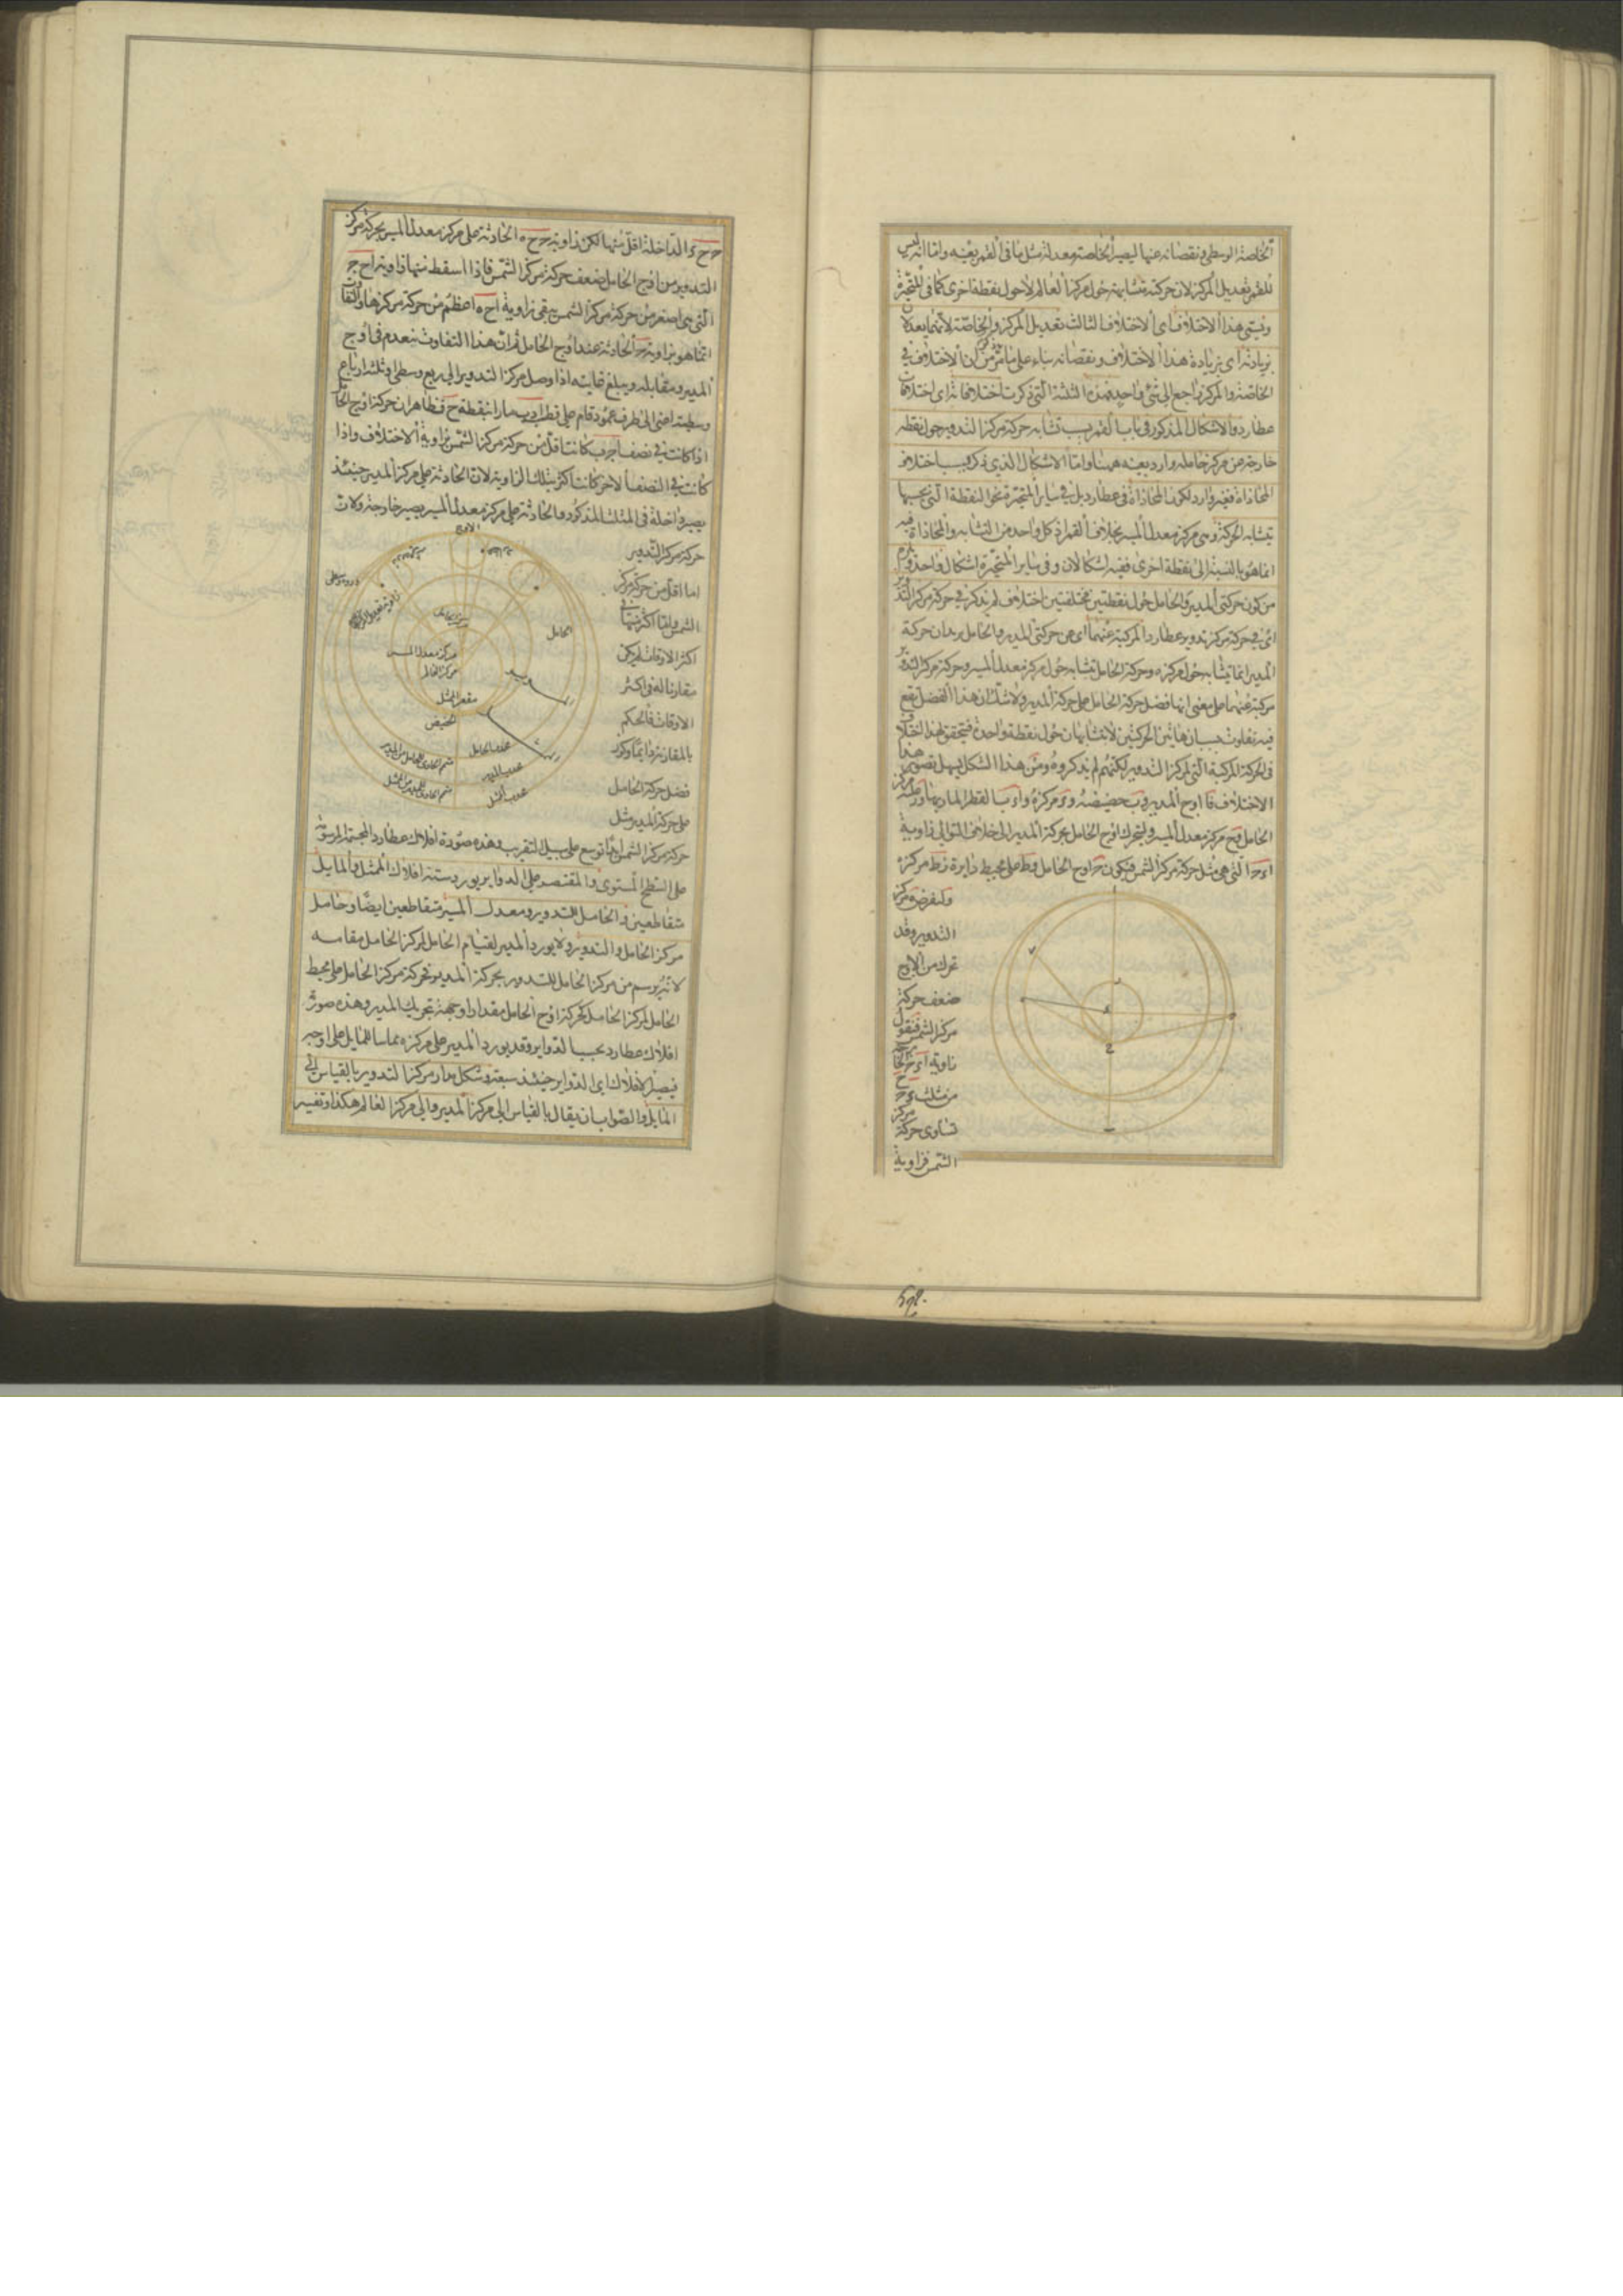 الخاصة الوسطى ونقصانه عنها ليصير الخاصة معدلة مثل ما فى القمر بعينه واما انه ليس
للقمر تعديل المركز لان حركته متشابهة حول مركز العالم لا حول نقطة اخرى كما فى المتحيرة
ويسمى هذا الاختلاف اى الاختلاف الثالث تعديل المركز والخاصة لانهما يعدلان
بزيادته اى بزيادة هذا الاختلاف ونقصانه بناء على ما مر من ان الاختلاف فى
الخاصة والمركز راجع الى شئ واحد فهذه الثلثة التى ذكرت اختلافاته اى اختلافات
عطارد والاشكال المذكور فى باب القمر بسبب تشابه حركة مركز التدوير حول نقطة
خارجة عن مركز حامله وارد بعينه ههنا واما الاشكال الذى ذكر بسبب اختلاف
المحاذاة فغير وارد لكون المحاذاة فى عطارد بل فى سائر المتحيرة نحو النقطة التى بحسبها
يتشابه الحركة وهى مركز معدل المسير بخلاف القمر اذ كل واحد من التشابه والمحاذاة فيه
انما هو بالنسبة الى نقطة اخرى ففيه اشكالان وفى سائر المتحيرة اشكال واحد ويلزم
من كون حركتى المدير والحامل حول نقطتين مختلفتين اختلاف لم يذكر فى حركة مركز التدوير
اى فى حركة مركز تدوير عطارد المركبة عنهما اى عن حركتى المدير والحامل يريد ان حركة
المدير انما يتشابه حول مركزه وحركة الحامل تشابه حول مركز معدل المسير وحركة مركز التدوير
مركبة عنهما على معنى انها فضل حركة الحامل على حركة المدير ولا شك ان هذا الفضل يقع
فيه تفاوت بسبب ان هاتين الحركتين لا تتشابهان حول نقطة واحدة فيتحقق لهذا اختلاف
فى الحركة المركبة التى لمركز التدوير لكنهم لم يذكروه ومن هذا الشكل يسهل تصوير هذا
الاختلاف فا اوج المدير وب حضيضه وء مركزه واء ب القطر المار بها وط مركز
الحامل وح مركز معدل المسير وليتحرك اوج الحامل بحركة المدير الى خلاف التوالى زاوية
اءح التى هى مثل حركة مركز الشمس فيكون ح اوج الحامل وط على محيط دايرة زط مركزه
ولنفرض ه مركز
التدوير وقد
تحرك من الاوج
ضعف حركة
مركز الشمس فنقول
زاوية اءح الخارجة
من مثلث ءحح
تساوى حركة مركز
الشمس فزاوية
حح ء الداخلة اقل منها لكن زاوية ححه الحادثة على مركز معدل المسير بحركة مركز
التدوير من اوج الحامل ضعف حركة مركز الشمس فاذا اسقط منها زاوية احح
التى هى اصغر من حركة مركز الشمس يبقى زاوية احه اعظم من حركة مركزها والتفاوت
انما هو بزاوية ح الحادثة عند اوج الحامل ثم ان هذا التفاوت ينعدم فى اوج
المدير ومقابله ويبلغ غايته اذا وصل مركز التدوير الى ربع وسطى او ثلثة ارباع
وسطية اعنى الى طرف عمود قام على قطر اب مارا بنقطة ح فظاهر ان حركة اوج الحامل
اذا كانت فى نصف احب كانت اقل من حركة مركز الشمس بزاوية الاختلاف واذا
كانت فى النصف الاخر كانت اكثر بتلك الزاوية لان الحادثة على مركز المدير حينئذ
يصير داخلة فى المثلث المذكور والحادثة على مركز معدل المسير يصير خارجة ولان
حركة مركز التدوير
اما اقل من حركة مركز
الشمس واما اكثر منها فى
اكثر الاوقات لم يكن
مقارنا له فى اكثر
الاوقات فالحكم
بالمقارنة دائما وكون
فضل حركة الحامل
على حركة المدير مثل
الاوج
الحامل
مركز الحامل
مركز معدل المسير
مركز العالم
مقعر الممثل
الحضيض
محدب الحامل
محدب المدير
محدب الممثل
متمم الحاوى للحامل من المدير
متمم الحاوى للمدير من الممثل
حركة مركز الشمس ابدا توسع على سبيل التقريب وهذه صورة افلاك عطارد المجسمة المرسومة
على السطح المستوى والمقتصر على الدواير يورد ستة افلاك الممثل والمايل
متقاطعين والحامل للتدوير ومعدل المسير متقاطعين ايضا وحامل
مركز الحامل والتدوير ولا يورد المدير لقيام الحامل لمركز الحامل مقامه
لانه يرسم من مركز الحامل للتدوير بحركة المدير فحركة مركز الحامل على محيط
الحامل لمركز الحامل كحركة اوج الحامل مقدارا وجهة بتحريك المدير وهذه صورة
افلاك عطارد بحسب الدواير وقد يورد المدير على مركزه مماسا للمايل على اوجه
فيصير الافلاك اى الدواير حينئذ سبعة وشكل مدار مركز التدوير بالقياس الى
المايل والصواب ان يقال بالقياس الى مركز المدير والى مركز العالم هكذا وتفسير